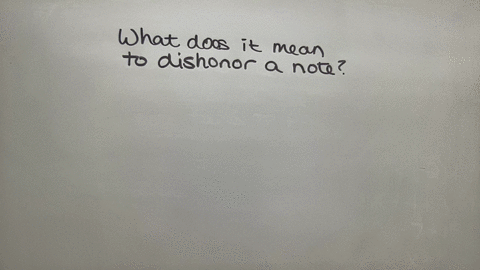 What does it mean
to dishonor a note?